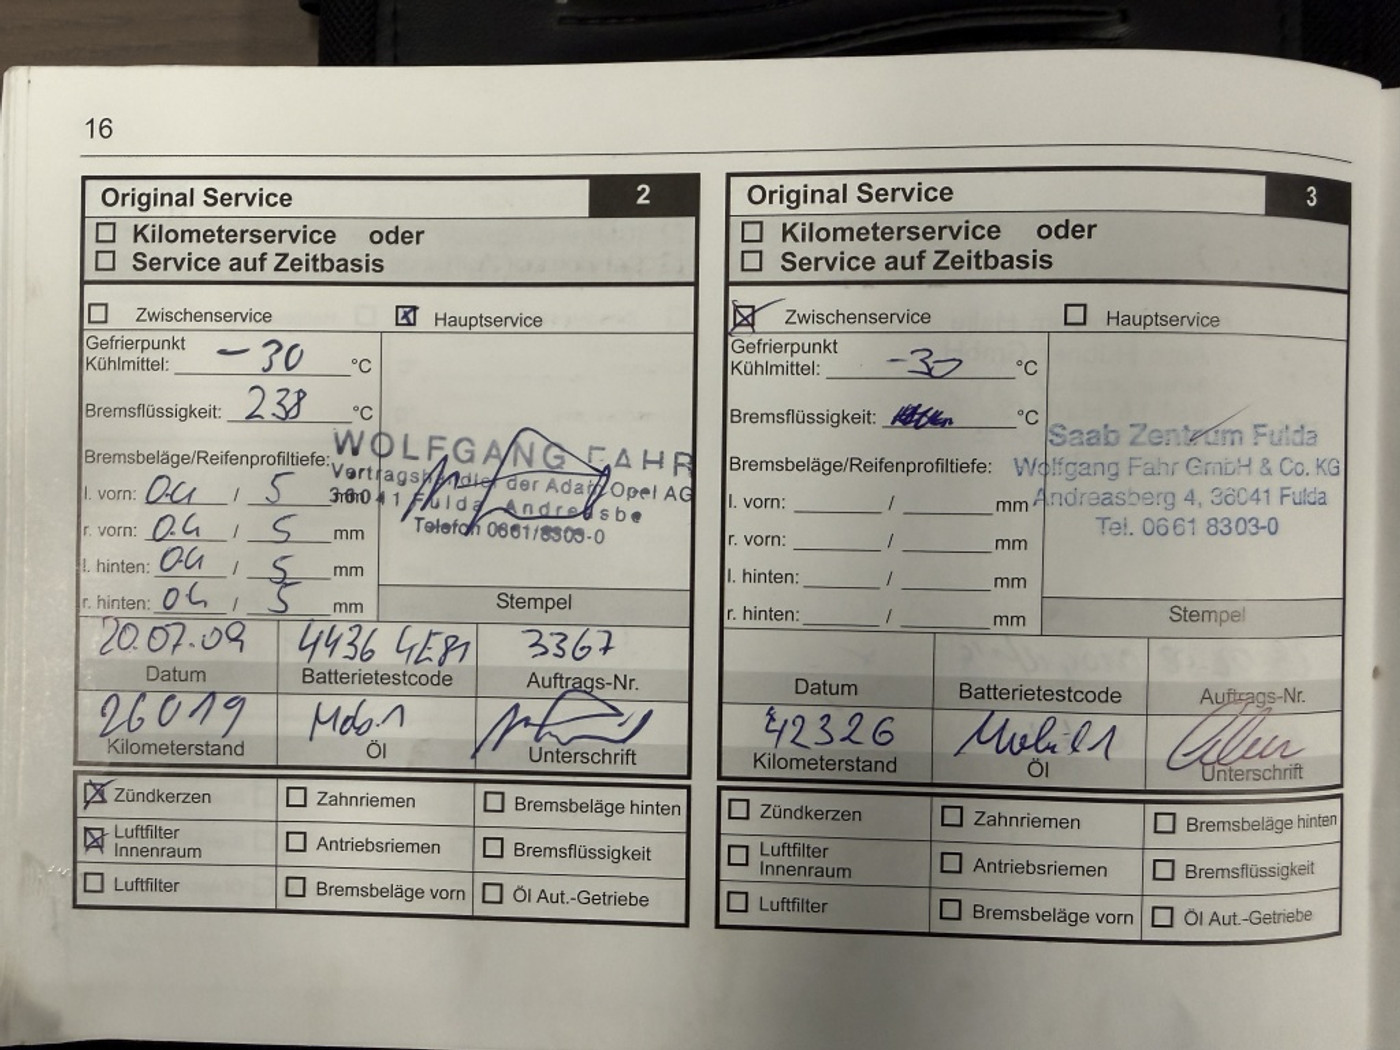 16
Original Service 2
Kilometerservice oder
Service auf Zeitbasis
Zwischenservice Hauptservice
Gefrierpunkt
Kühlmittel: -30 °C
Bremsflüssigkeit: 238 °C
WOLFGANG FAHR
Bremsbeläge/Reifenprofiltiefe:
Vertragshändler der Adam Opel AG
l. vorn: 04 / 5 mm
36041 Fulda Andreasbe
r. vorn: 04 / 5 mm
Telefon 0661/8303-0
l. hinten: 04 / 5 mm
r. hinten: 04 / 5 mm
Stempel
20.07.09 4436 4E81 3367
Datum Batterietestcode Auftrags-Nr.
26019 Mob.1
Kilometerstand Öl Unterschrift
Zündkerzen Zahnriemen Bremsbeläge hinten
Luftfilter
Innenraum Antriebsriemen Bremsflüssigkeit
Luftfilter Bremsbeläge vorn Öl Aut.-Getriebe
Original Service 3
Kilometerservice oder
Service auf Zeitbasis
Zwischenservice Hauptservice
Gefrierpunkt
Kühlmittel: -30 °C
Bremsflüssigkeit: °C
Saab Zentrum Fulda
Bremsbeläge/Reifenprofiltiefe:
Wolfgang Fahr GmbH & Co. KG
l. vorn: / mm
Andreasberg 4, 36041 Fulda
Tel. 0661 8303-0
r. vorn: / mm
l. hinten: / mm
r. hinten: / mm
Stempel
Datum Batterietestcode Auftrags-Nr.
42326 Mobil 1
Kilometerstand Öl Unterschrift
Zündkerzen Zahnriemen Bremsbeläge hinten
Luftfilter
Innenraum Antriebsriemen Bremsflüssigkeit
Luftfilter Bremsbeläge vorn Öl Aut.-Getriebe